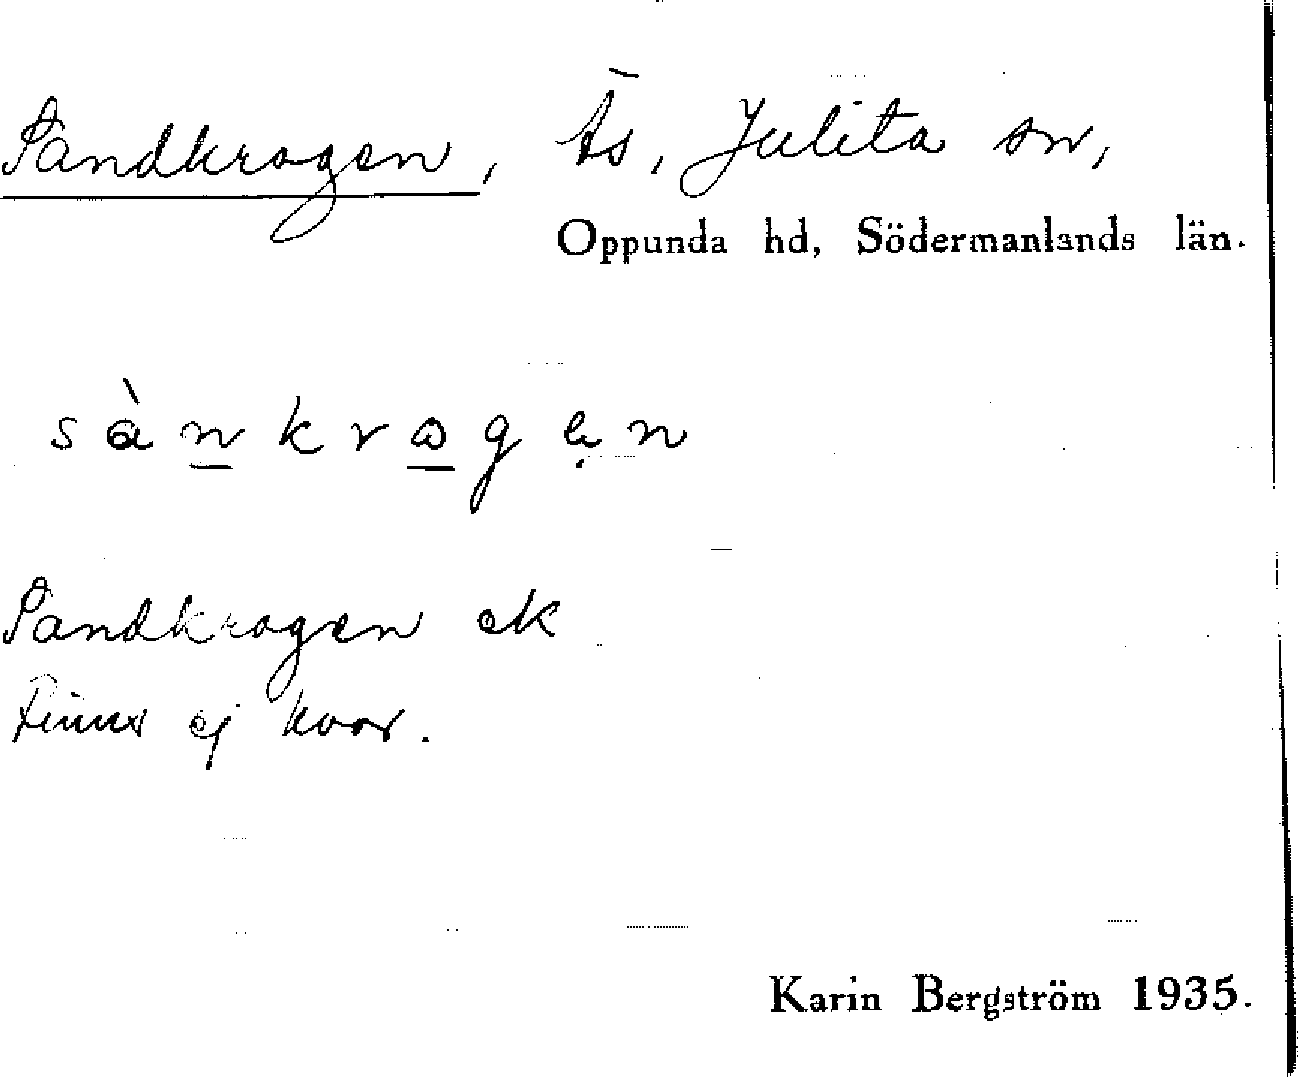 Sandkrogen, Ås, Julita sn,
Oppunda hd, Södermanlands län.
sànkrogen
Sandkrogen ek
Finns ej kvar.
Karin Bergström 1935.